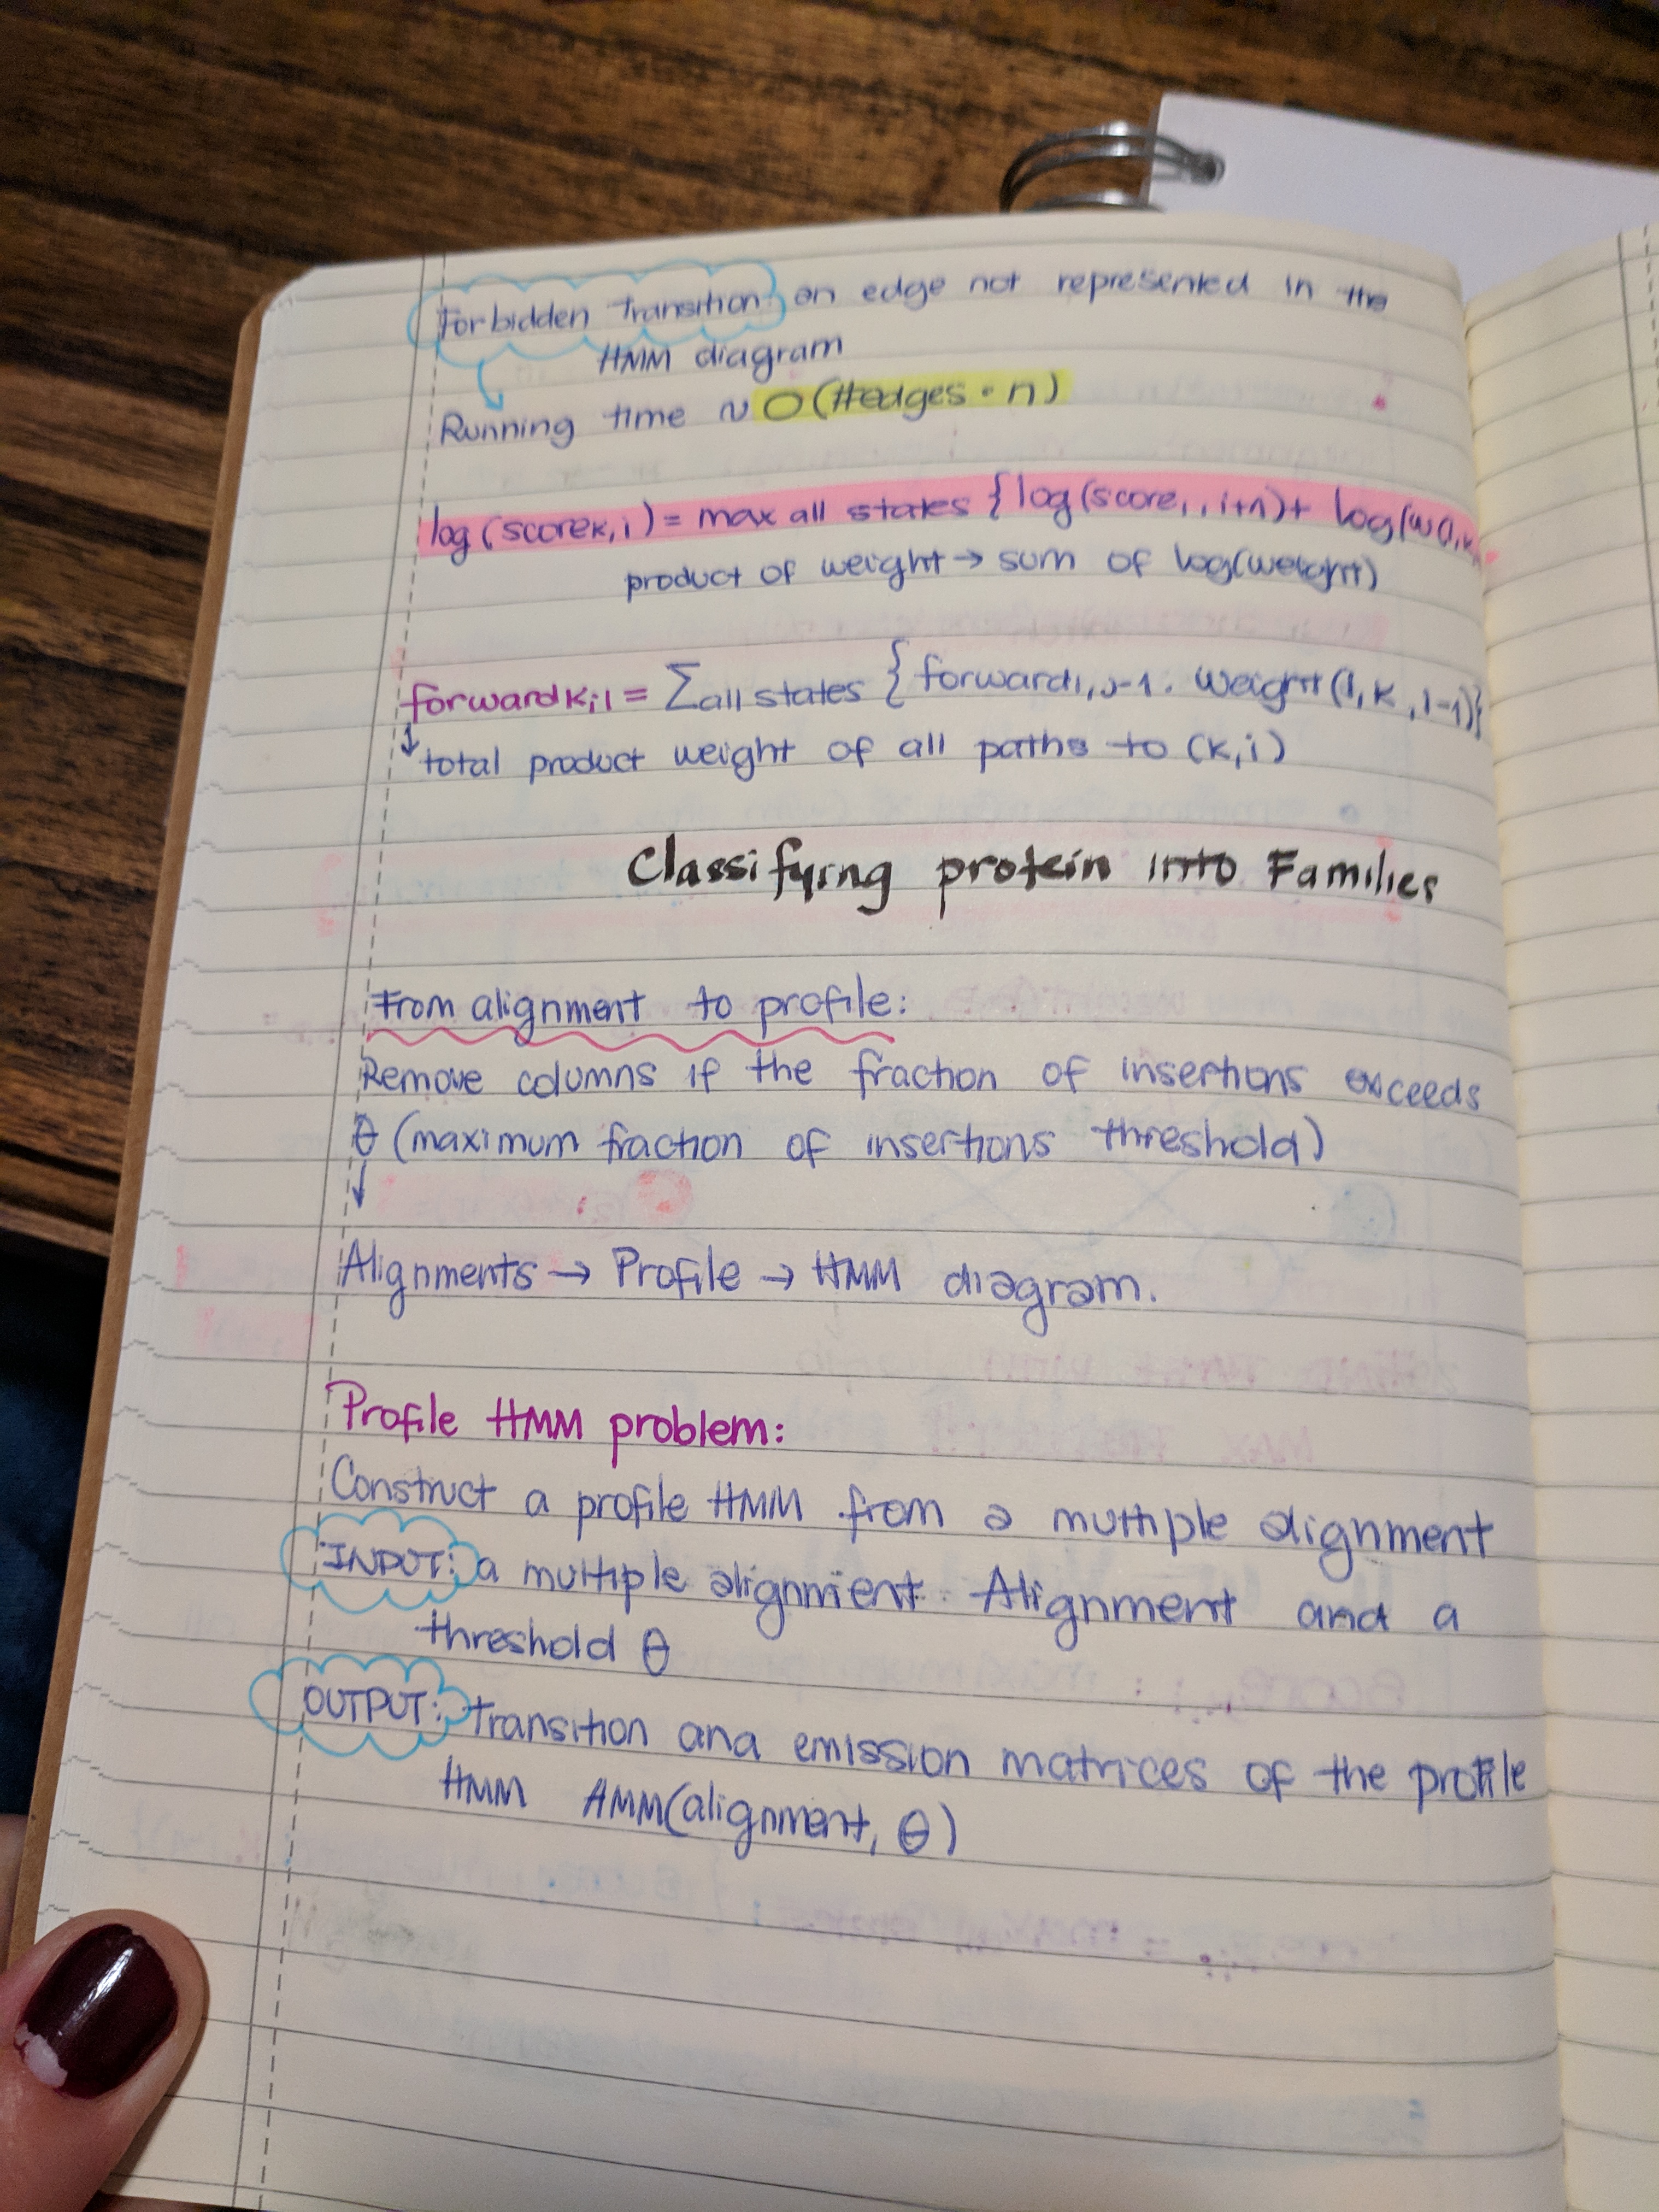 Forbidden Transition: an edge not represented in the
HMM diagram
Running time ~ O(#edges · n)
log(score k,i) = max all states {log(score l, i+1)+ log(w(l,k,
product of weight → sum of log(weight)
forward k,i = Σ all states { forward l,i-1 . Weight(l,k,i-1)}
↓ total product weight of all paths to (k,i)
Classifying protein into Families
From alignment to profile:
Remove columns if the fraction of insertions exceeds
θ (maximum fraction of insertions threshold)
↓
Alignments → Profile → HMM diagram.
Profile HMM problem:
Construct a profile HMM from a multiple alignment
INPUT: a multiple alignment Alignment and a
threshold θ
OUTPUT: Transition and emission matrices of the profile
HMM HMM(alignment, θ)